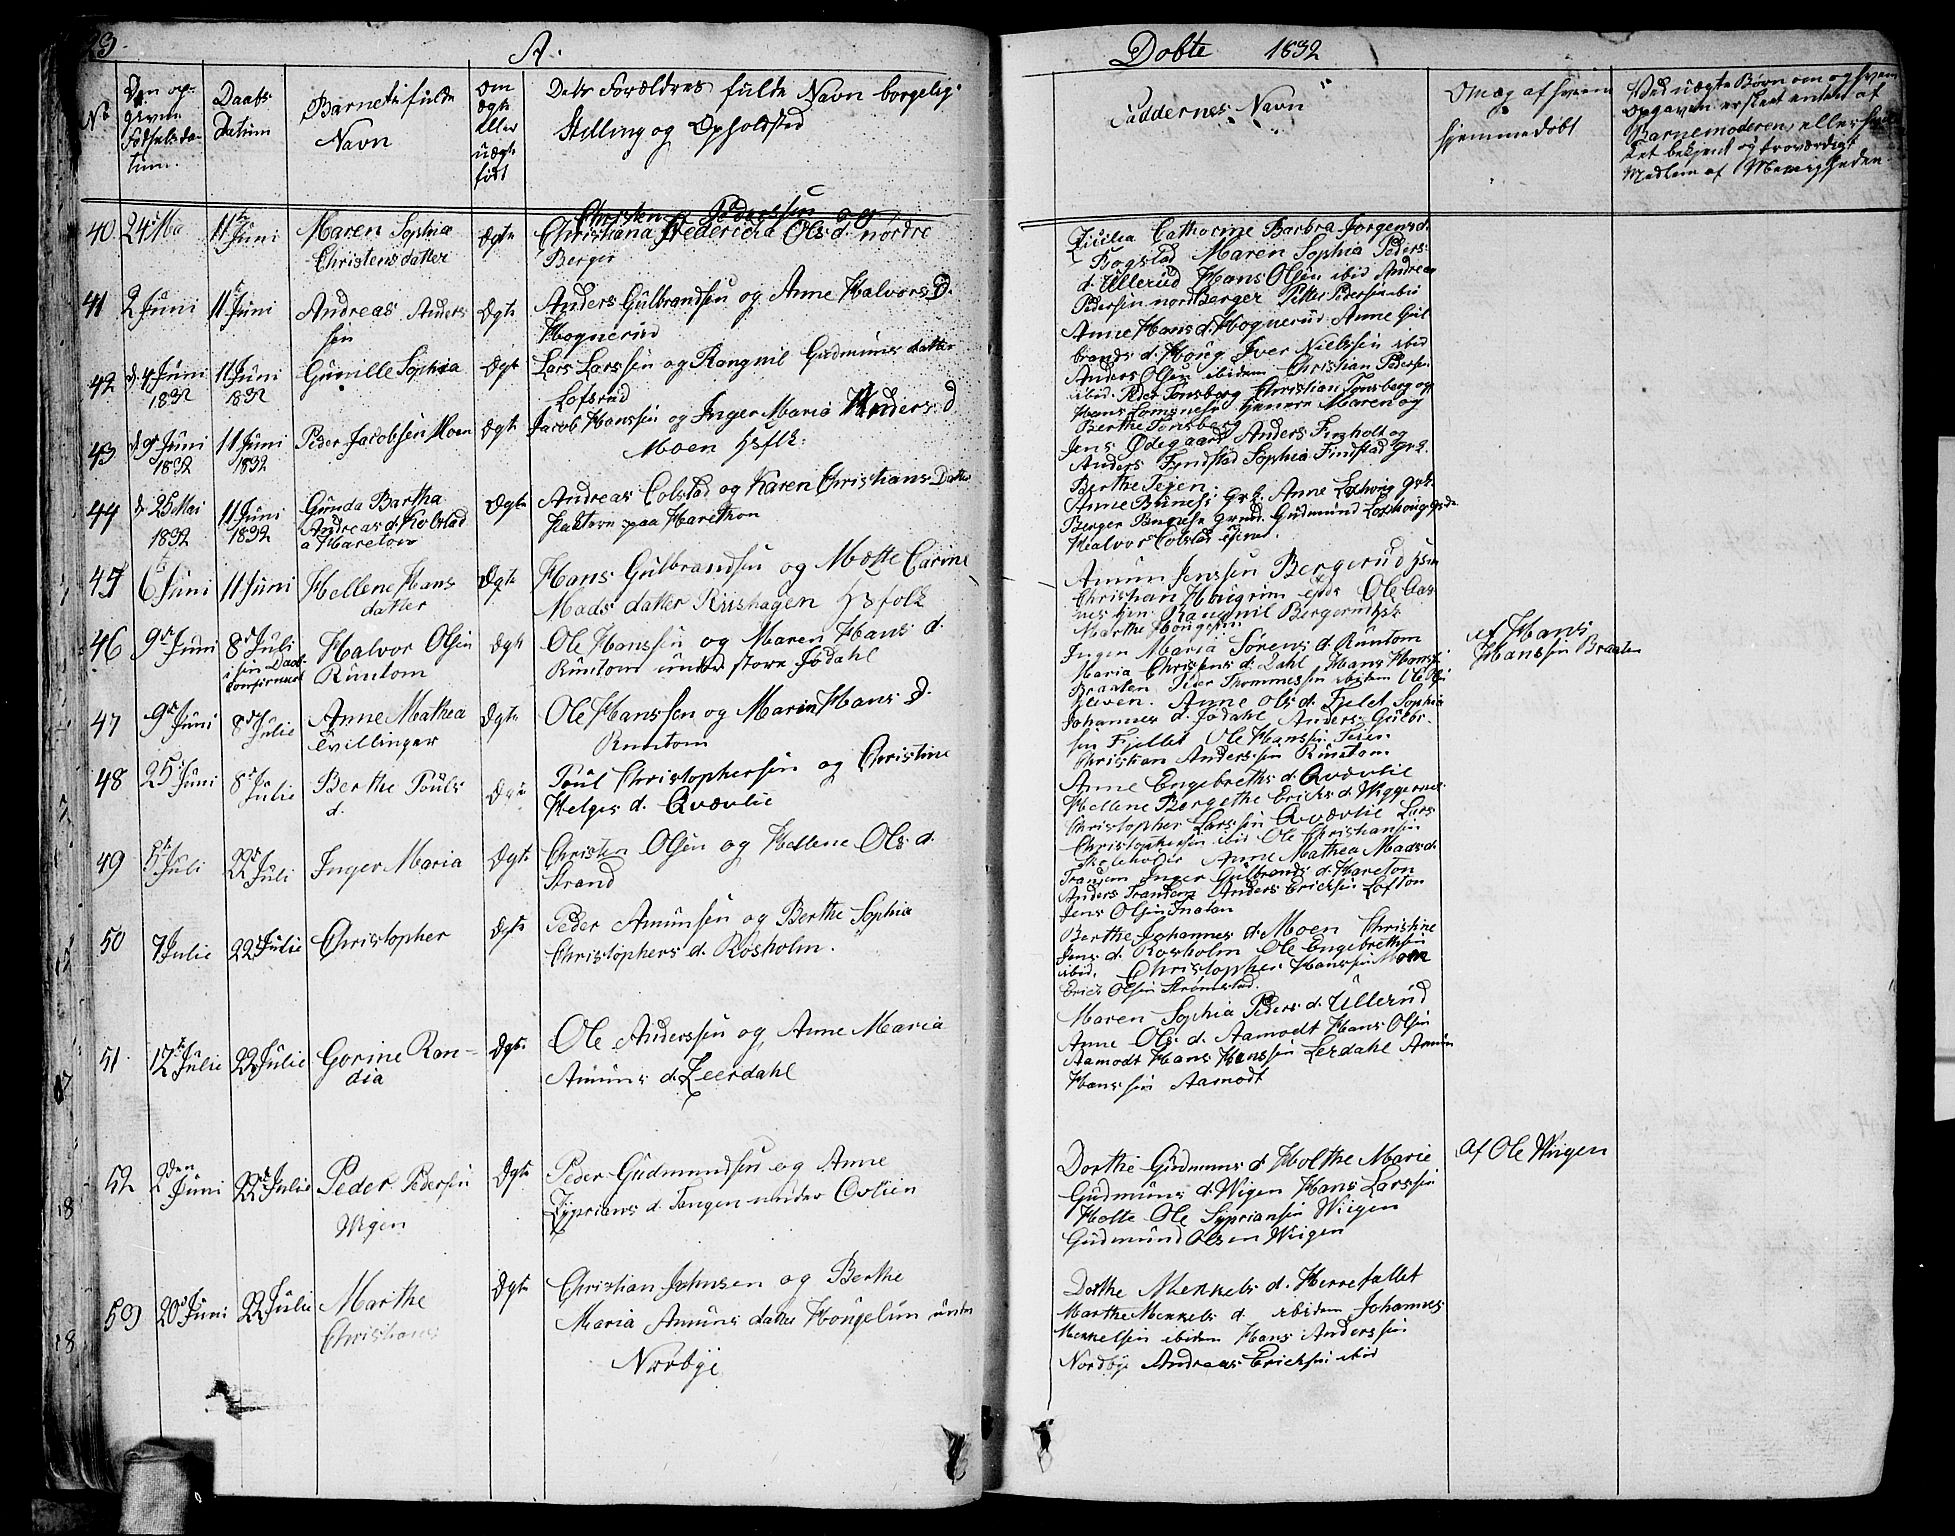 23.
A.
Døbte 1832
No
Den op-
given
Fødselsda-
tum.
Daabs
Datum
Barnets fulde
Navn
Om
ægte
eller
uægte
født
Dets Forældres fulde Navn borgelig
Stilling og Opholdsted
Faddernes Navn
Om og af hvem
hjemmedøbt
Ved uægte Børn om og hvem
Opgaven er skeet enten af
Barnemoderen, eller
Let bekjent og troværdigt
Medlem af Menigheden.
40. 24 Mai 11 Juni Maren Sophia
Christensdatter
Ægte
Christen Pederssen og
Christiana Fredericia Ols d. nordre
Berger
Cathorine Barbra Jorgens d.
Bogstad Maren Sophia Peders
d. Ullerud Hans Olsen ibid Andreas
Pedersen nord Berger Petter Pedersen ibid
41 2 Juni 11 Juni Andreas Anders
sen
Ægte
Anders Gulbrandsen og Anne Halvors D.
Hognerud
Anne Hans d. Hognerud Anne Gul
brands d. Houg Iver Nielssen ibid
Anders Olsen ibidem Christian Pedersen
ibid.
42 d. 4 Juni
1832
11 Juni
1832
Gunille Sophia
Ægte
Lars Larssen og Rangnil Gudmunds datter
Lofsrud
Peder Tonsberg Christian Tonsberg og
Maren og
Berthe Tonsberg
43 d. 9 Juni
1832
11 Juni
1832
Peder Jacobsen Moen
Ægte
Jacob Hanssen og Inger Maria Anders d
Moen Hsflk:
Jens Ødegaard Anders Finholt og
Anders Fyndstad Sophia Findstad Grk.
Berthe Teien
44 d. 25 Mai
1832
11 Juni
1832
Gunda Bartha
Andreas d. Kolstad
a Haretom
Ægte
Andreas Colstad og Karen Christians Datter
paa Harethon
Halvor Colstad
45 6 Juni 11 Juni Hellene Hans
datter
Ægte
Hans Gulbrandsen og Mette Carine
Mads datter Riishagen Hsfolk
Amun Jenssen Bergerud
Christian Ole Aas
Rangnil Bergerud
Marthe
46 9 Juni 8 Juli
i sin Daab
confirmert
Halvor Olsen
Runtom
Ægte
Ole Hanssen og Maren Hans d.
Runtom under store Jødahl
Ingen Maria Sørens d. Runtom
Maria Christens d. Dahl Hans Hanss
Braaten Peder Thommessen ibidem
af Hans
Hanssen Braaten
47 9 Juni 8 Julie Anne Mathea
Tvillinger
Ægte
Ole Hanssen og Maren Hans D.
Runtom
Anne Ols d. Fjelet Sophia
Johannes d. Jødahl Anders Gulbr.
sen Fjellet Ole Hanssen Teien
Christian Anderssen Runtom
48 25 Juni 8 Julie Berthe Pouls
d.
Ægte
Poul Christophersen og Christine
Helges d. Qvævlie
Anne Engebreths d. Qvævlie
Hellene Bergethe Ericks d. Wiggernes
Christopher Larssen Qvævlie Lars
Christophersen ibid Ole Christiansen
Skoleholder
49 5 Juli 22 Juli Inger Maria
Ægte
Christen Olsen og Hellene Ols d.
Strand
Anne Mathea Mads d.
Trandem Inger Gulbrands d. Hareton
Anders Trandem Anders Ericksen Lofton
Jens Olsen
50 7 Julie 22 Julie Christopher
Ægte
Peder Amunsen og Berthe Sophia
Christophers d. Rosholm.
Berthe Johannes d. Moen Christine
Jens d. Rosholm Ole Engebrethsen
ibid. Christopher Hanssen Moen
Erick Olsen Strømstad.
51. 12 Julie 22 Julie Gorine Ran-
dia
Ægte
Ole Anderssen og Anne Maria
Amuns d. Leerdahl
Maren Sophia Peders d. Ullerud
Anne Ols d. Aamodt Hans Olsen
Aamodt Hans Hanssen Lerdahl Amun
Hans sen Aamodt
52 2den
Juni
22 Julie Peder Pedersen
Wigen
Ægte
Peder Gudmundsen og Anne
Zyprians d. Tangen under Ovlien
Dorthe Gudmuns d. Holthe Marie
Gudmuns d. Wigen Hans Larssen
Holte Ole Sypriansen Wiigen
Gudmund Olsen Wiigen
af Ole Wiigen
53 20 Juni 22 Julie Marthe
Christians
Ægte
Christian Johnsen og Berthe
Maria Amuns datter Hougelun under
Norbye
Dorthe Menkels d. Herrefallet
Marthe Menkels d. ibidem Johannes
Menkelsen ibidem Hans Anderssen
Nordbye Andreas Ericksen ibid